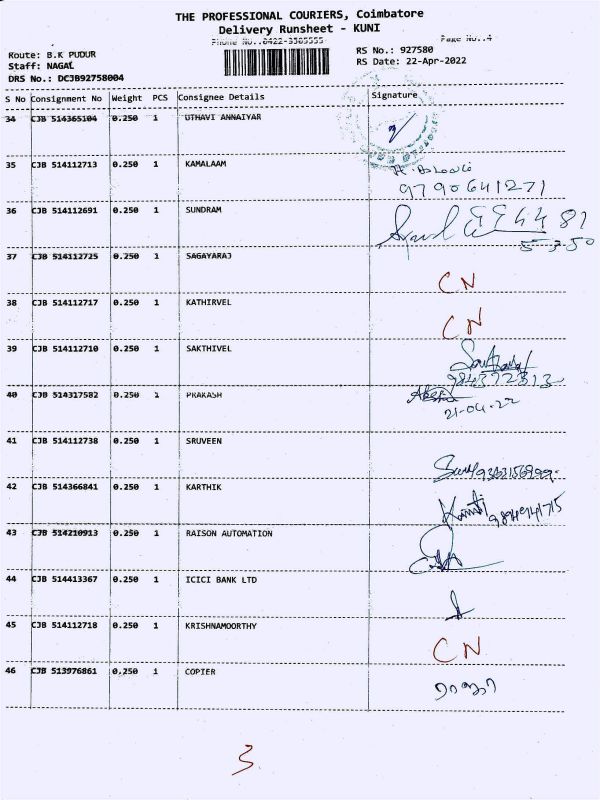 THE PROFESSIONAL COURIERS, Coimbatore
Delivery Runsheet - KUNI
Phone No.:0422-3565555
Page No.:4
Route: B.K PUDUR
RS No.: 927580
Staff: NAGAL
RS Date: 22-Apr-2022
DRS No.: DCJB92758004
S No Consignment No Weight PCS Consignee Details Signature
34 CJB 514365104 0.250 1 UTHAVI ANNAIYAR
35 CJB 514112713 0.250 1 KAMALAAM
9790641271
36 CJB 514112691 0.250 1 SUNDRAM
37 CJB 514112725 0.250 1 SAGAYARAJ
CN
38 CJB 514112717 0.250 1 KATHIRVEL
CN
39 CJB 514112710 0.250 1 SAKTHIVEL
40 CJB 514317582 0.250 1 PRAKASH
21-04-22
41 CJB 514112738 0.250 1 SRUVEEN
42 CJB 514366841 0.250 1 KARTHIK
9894941715
43 CJB 514210913 0.250 1 RAISON AUTOMATION
44 CJB 514413367 0.250 1 ICICI BANK LTD
45 CJB 514112718 0.250 1 KRISHNAMOORTHY
CN
46 CJB 513976861 0.250 1 COPIER
3